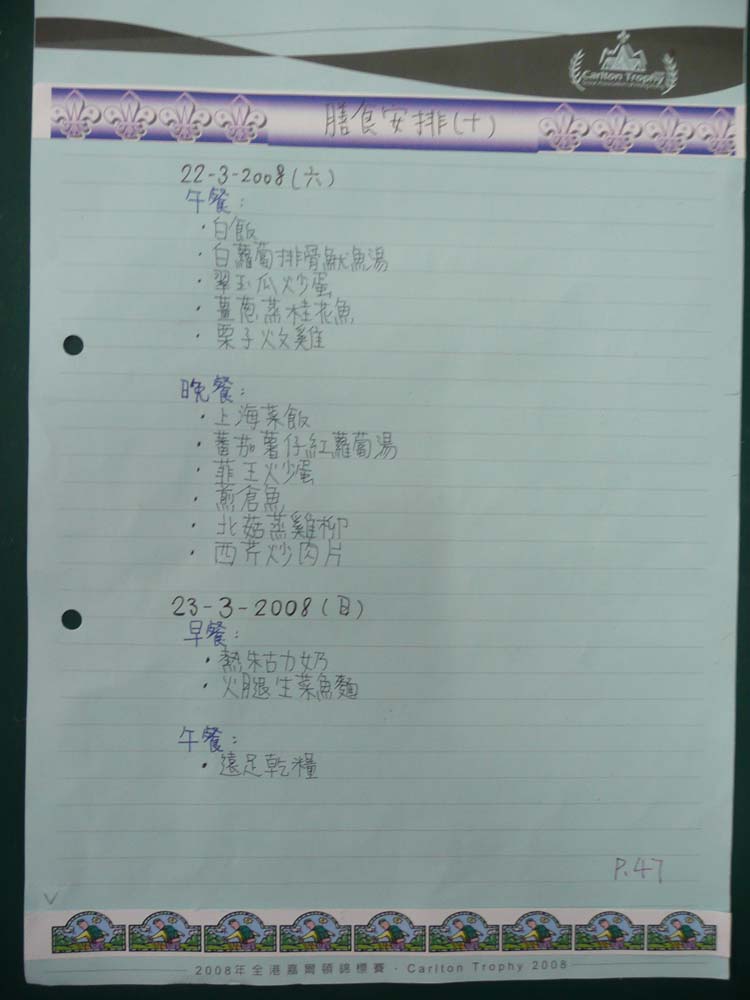 Carlton Trophy
膳食安排(十)
22-3-2008(六)
午餐:
·白飯
·白蘿蔔排骨魷魚湯
·翠玉瓜炒蛋
·薑葱蒸桂花魚
·栗子炆雞
晚餐:
·上海菜飯
·蕃茄薯仔紅蘿蔔湯
·菲王炒蛋
·煎倉魚
·北菇蒸雞柳
·西芹炒肉片
23-3-2008(日)
早餐:
·熱朱古力奶
·火腿生菜魚麵
午餐:
·遠足乾糧
P.47
2008年全港嘉爾頓錦標賽·Carlton Trophy 2008